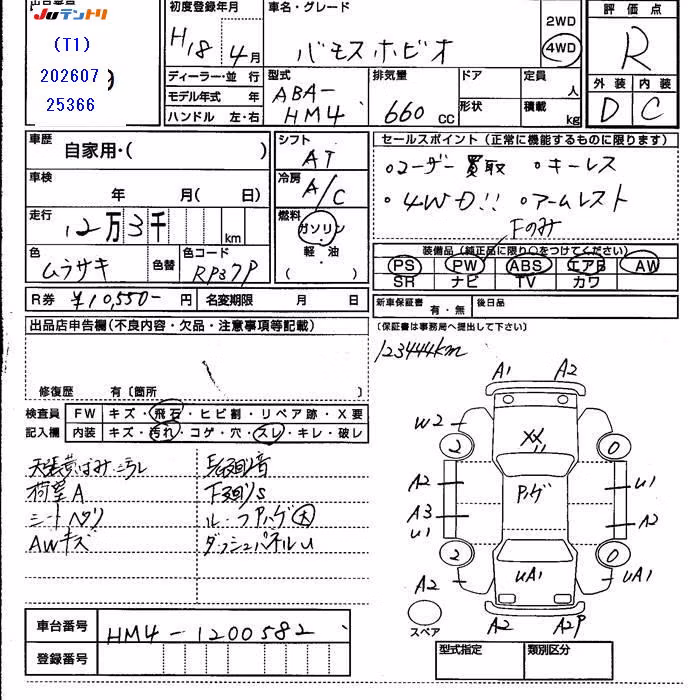 Juテントリ
(T1)
202607
25366
初度登録年月
H18 4月
車名・グレード
バモスホビオ
2WD
4WD
評価点
R
外装 内装
D C
ディーラー・並行
モデル年式 年
ハンドル 左・右
型式
ABA-
HM4
排気量
660 CC
ドア
形状
定員 人
積載 kg
車歴
自家用・( )
車検
年 月( 日)
走行
12万3千 km
色
ムラサキ
色替
色コード
RP37P
シフト
AT
冷房
A/C
燃料
ガソリン
軽・油
( ・ )
セールスポイント (正常に機能するものに限ります)
○ユーザー買取 ○キーレス
・4WD!! ○アームレスト
Fのみ
装備品 (純正品に限り○をつけてください)
PS PW ABS エアB AW
SR ナビ TV カワ
R券 ¥10,550- 円 名変期限 月 日
新車保証書 有・無 後日品
(保証書は事務局へ提出して下さい)
出品店申告欄(不良内容・欠品・注意事項等記載)
修復歴 有〔箇所 〕
123444km
検査員 FW キズ・飛石・ヒビ割・リペア跡・X要
記入欄 内装 キズ・汚れ・コゲ・穴・スレ・キレ・破レ
荷室A 下廻りS
シートヘタリ ルーフAハゲ大
AWキズ ダッシュパネルU
A1 A2
W2
2 0
XX
A2 U1
Pハゲ
A3 A2
U1
2 0
A2 UA1 UA1
スペア
A2 A2P
車台番号 HM4-1200582
登録番号
型式指定 類別区分